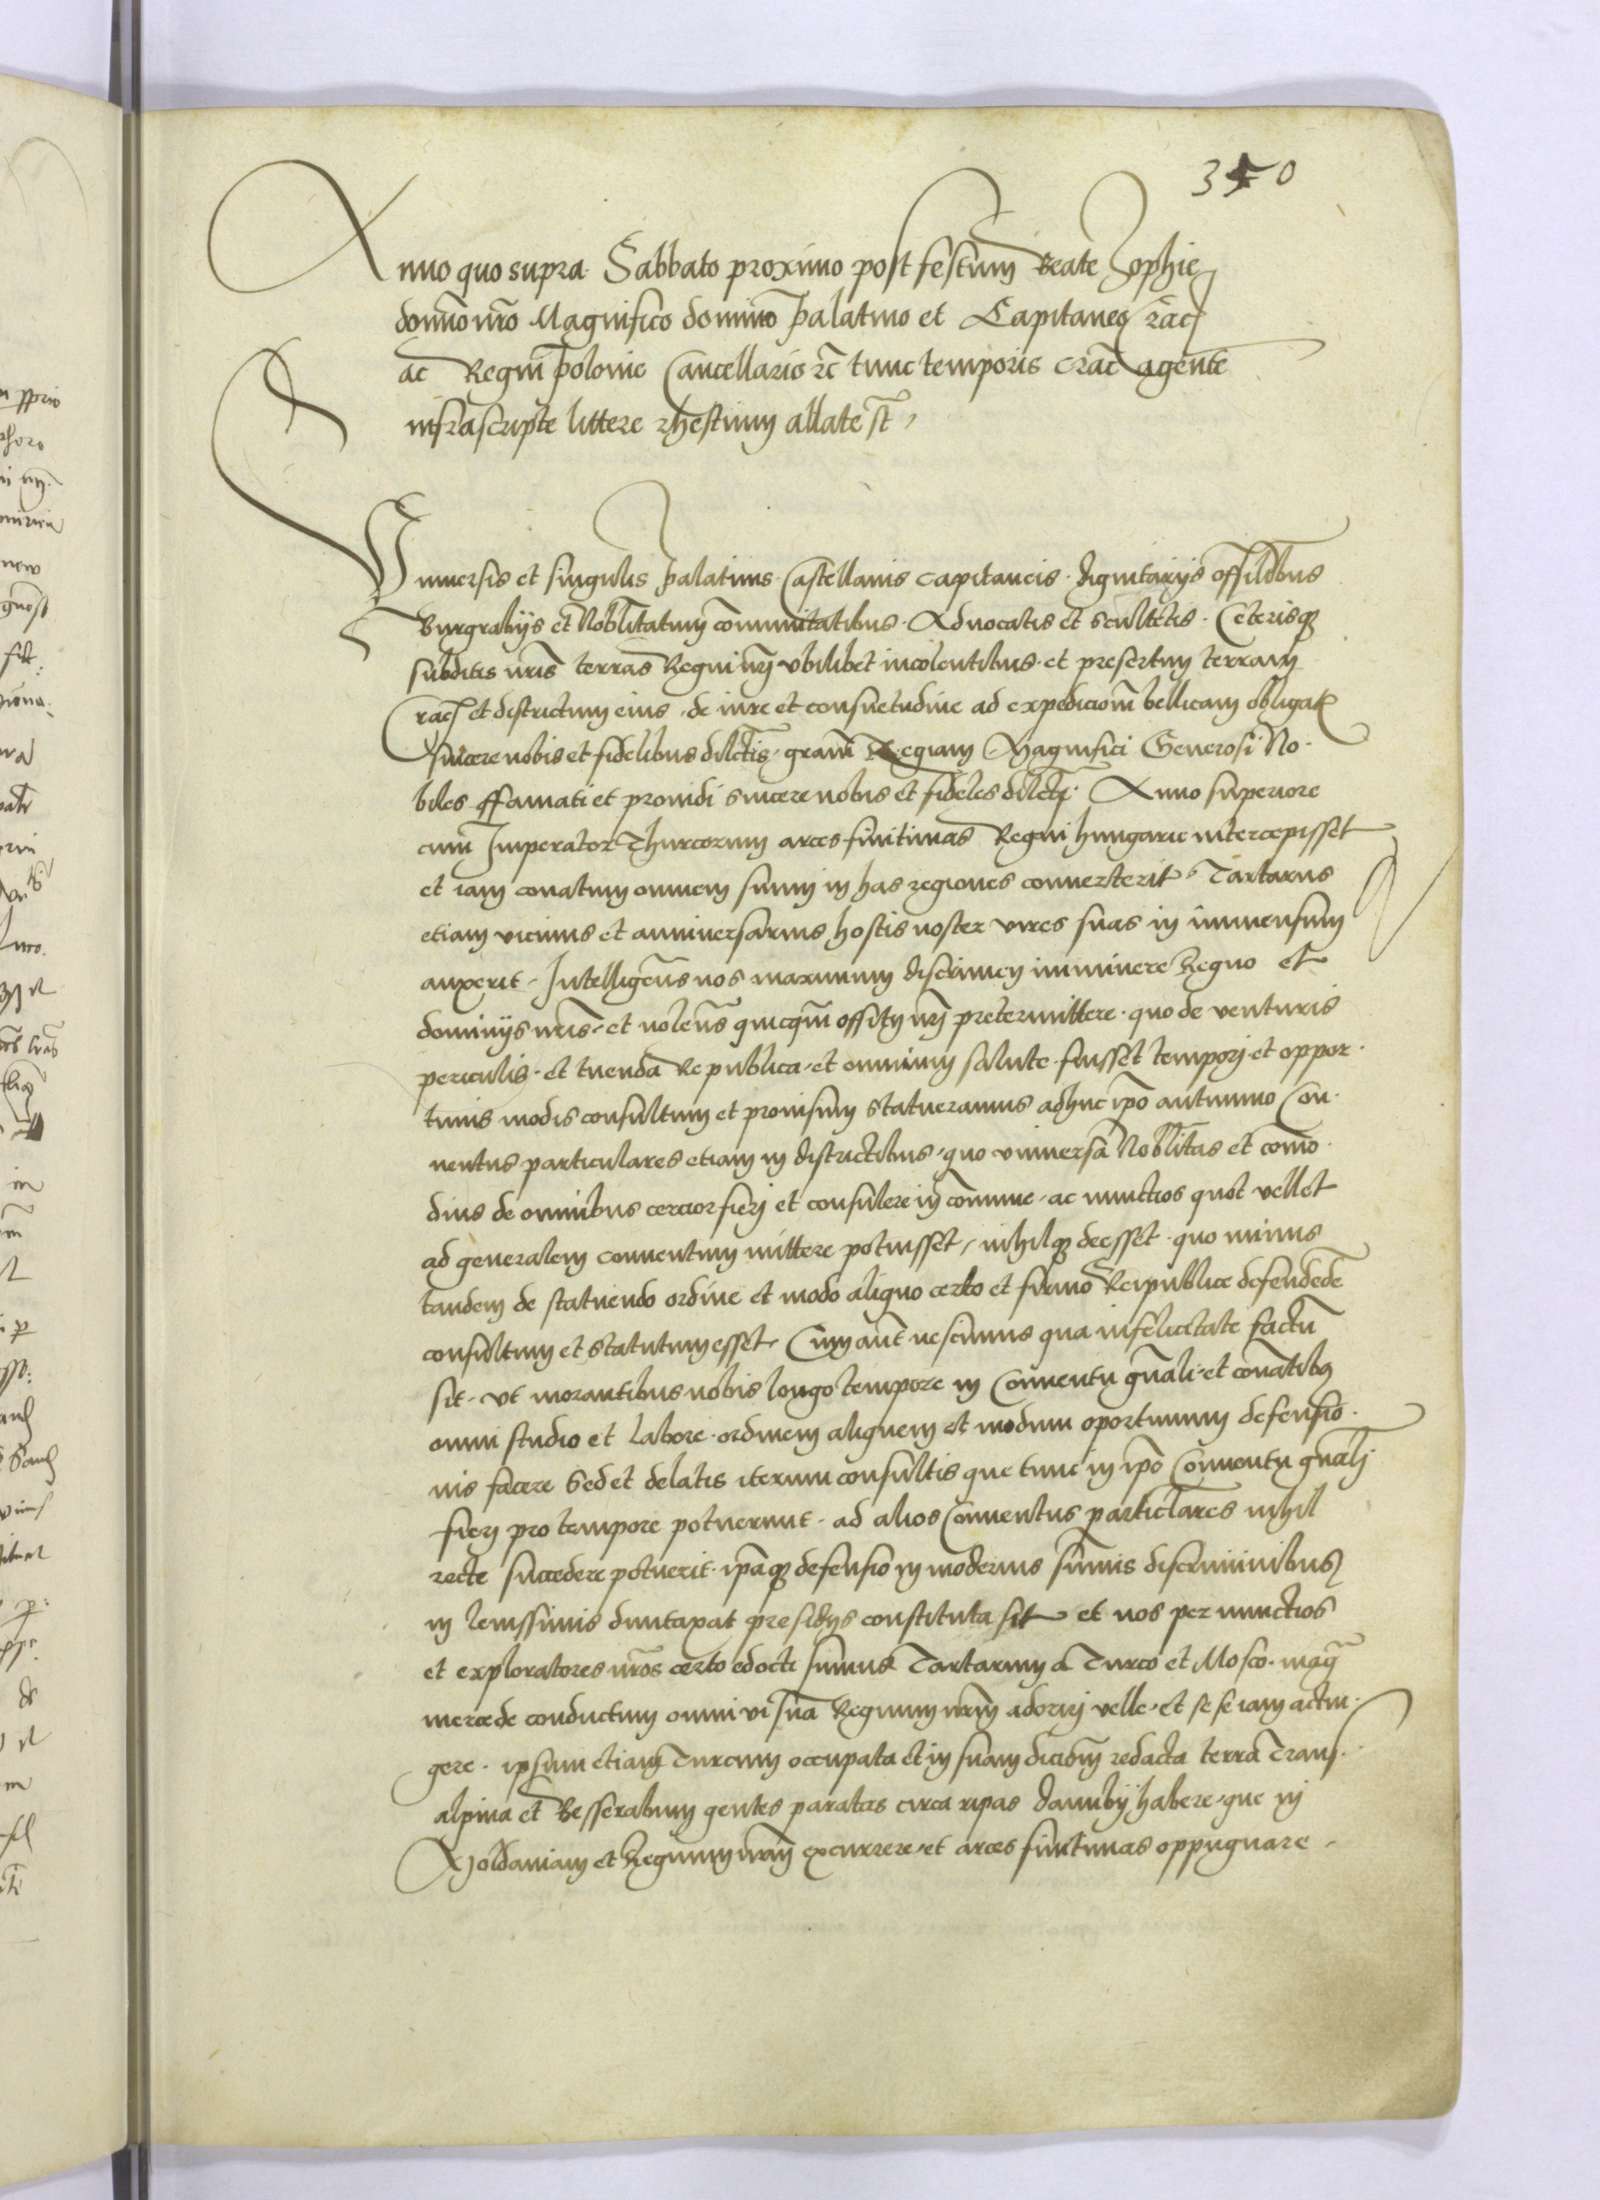 350
Anno quo supra Sabbato proximo post festum Beate Zophie
domino nr̃o Magnifico domino Palatino et Capitaneo Crac̃
ac Regni Polonie Cancellario rc̃ tunc temporis Crac̃ agente
infrascripte littere rhestium allate st̃
Universis et singulis Palatinis Castellanis capitaneis dignitarijs offilibus
Burgrabijs et Noblitatum communitatibus Advocatis et scultetis Ceterisq
subditis nr̃is terras Regni nr̃i vbilibet incolentibus et presertim terram
Crac̃ et districtum eius de iure et consuetudine ad expedicionem bellicam obligat
sincere nobis et fidelibus dilctis gram̃ Regiam Magnifici Generosi No-
biles ffamati et prouidi sincere nobis et fideles dilcti Anno superiore
cum Imperator Thurcorum arces finitimas Regni hungarie intercepisset
et iam conatum omnem suum in has regiones conuerterit Tartarus
etiam vicinus et anniuersarius hostis noster vires suas in immensum
auxerit Intelligens nos maximum discrimen imminere Regno et
dominijs nr̃is et nolens quicq̃m offitij nr̃i pretermittere quo de venturis
periculis et tuenda Republica et omnium salute fuisset tempori et oppor-
tunis modis consultum et prouisum statueramus adhuc ip̃o autumno Con-
uentus particulares etiam in districtibus quo vniuersa Noblitas et com̃o-
dius de omnibus cercior fieri et consulere in com̃une ac nunctios quot vellet
ad generalem conuentum mittere potuisset nihilq deesset quo minus
tandem de statuendo ordine et modo aliquo certo et firmo Reipublice defendede
consultum et statutum esset Cum aut̃ nescimus qua infelicitate factu
sit vt morantibus nobis longo tempore in Conuentu gñali et conatibus
omni studio et labore ordinem aliquem et modum oportunum defensio-
nis facere Sed et delatis iterum consultis que tunc in ip̃o Conuentu gñali
fieri pro tempore potuerunt ad alios Conuentus particlares nihil
recte succedere potuerit ip̃aq defensio in modernis sum̃is discriminibus
in leuissimis duntaxat presidijs constituta sit et nos per nunctios
et exploratores nr̃os certo edocti sumus Tartarum a Turco et Mosco magᷓ
mercede conductum omni vi sua Regnum nr̃m adoriri velle et se se iam accin-
gere ipsum etiam Turcum occupata et in suam dicionem redacta terra Trans-
alpina et Besserabum gentes paratas circa ripas danubij habere que in
Moldauiam et Regnum nr̃m excurrere et arces finitimas oppugnare